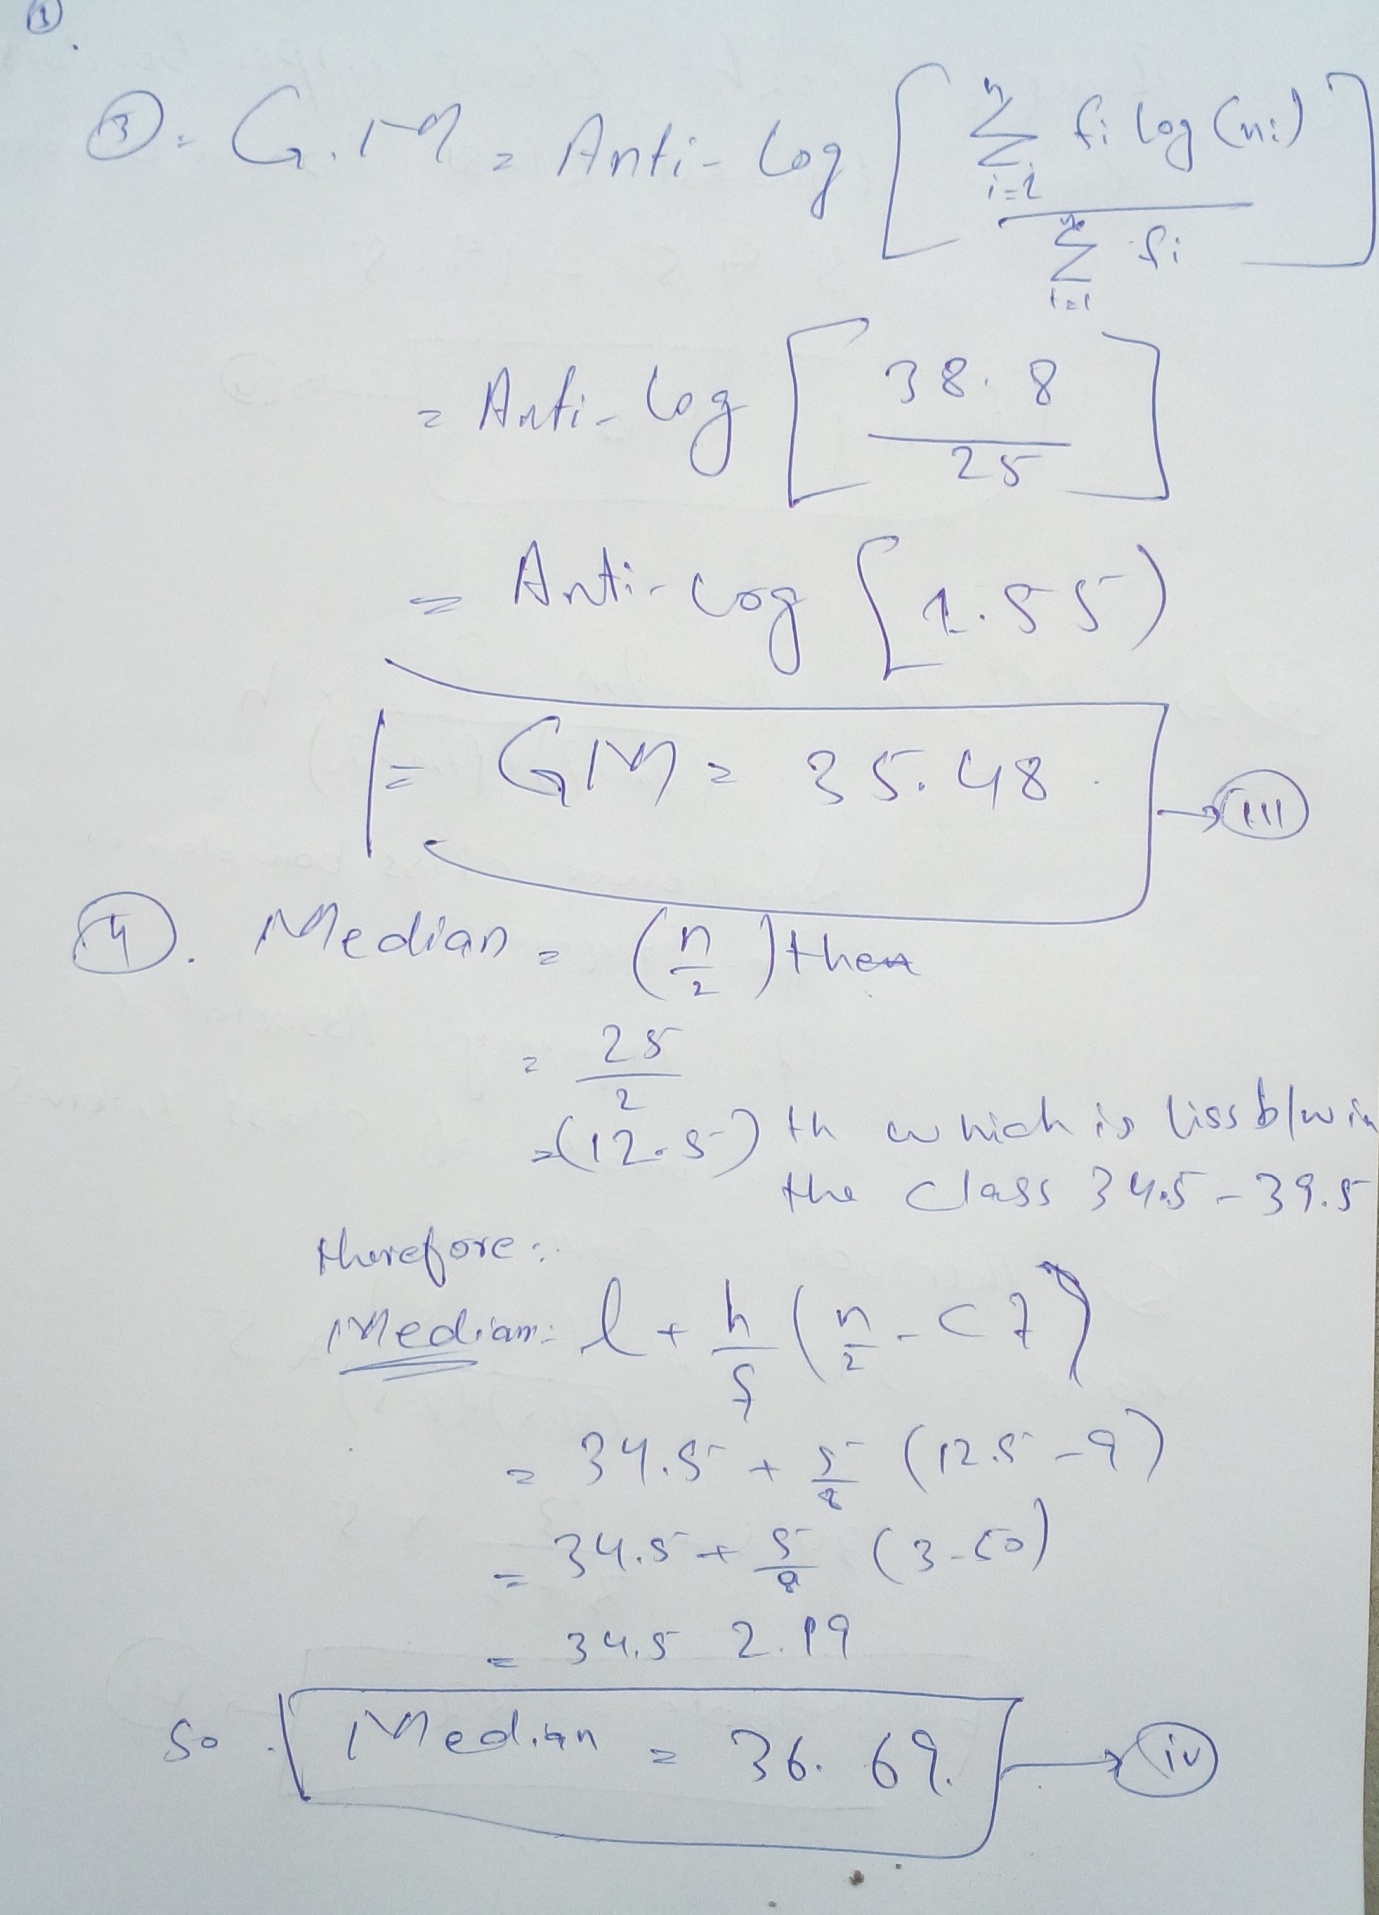 ①.
③. G.M = Anti-log [ n Σ i=1 fi log (xi) / n Σ i=1 fi ]
= Anti-log [ 38.8 / 25 ]
= Anti-log [1.55)
|= GM = 35.48. → (iii)
④. Median = (n/2) then
= 25/2
=(12.5) th which is liss b/w in
the class 34.5 - 39.5
therefore:
Median: l + h/f (n/2 - c7)
= 34.5 + 5/8 (12.5 - 9)
= 34.5 + 5/8 (3.50)
= 34.5 2.19
So Median = 36.69. → (iv)